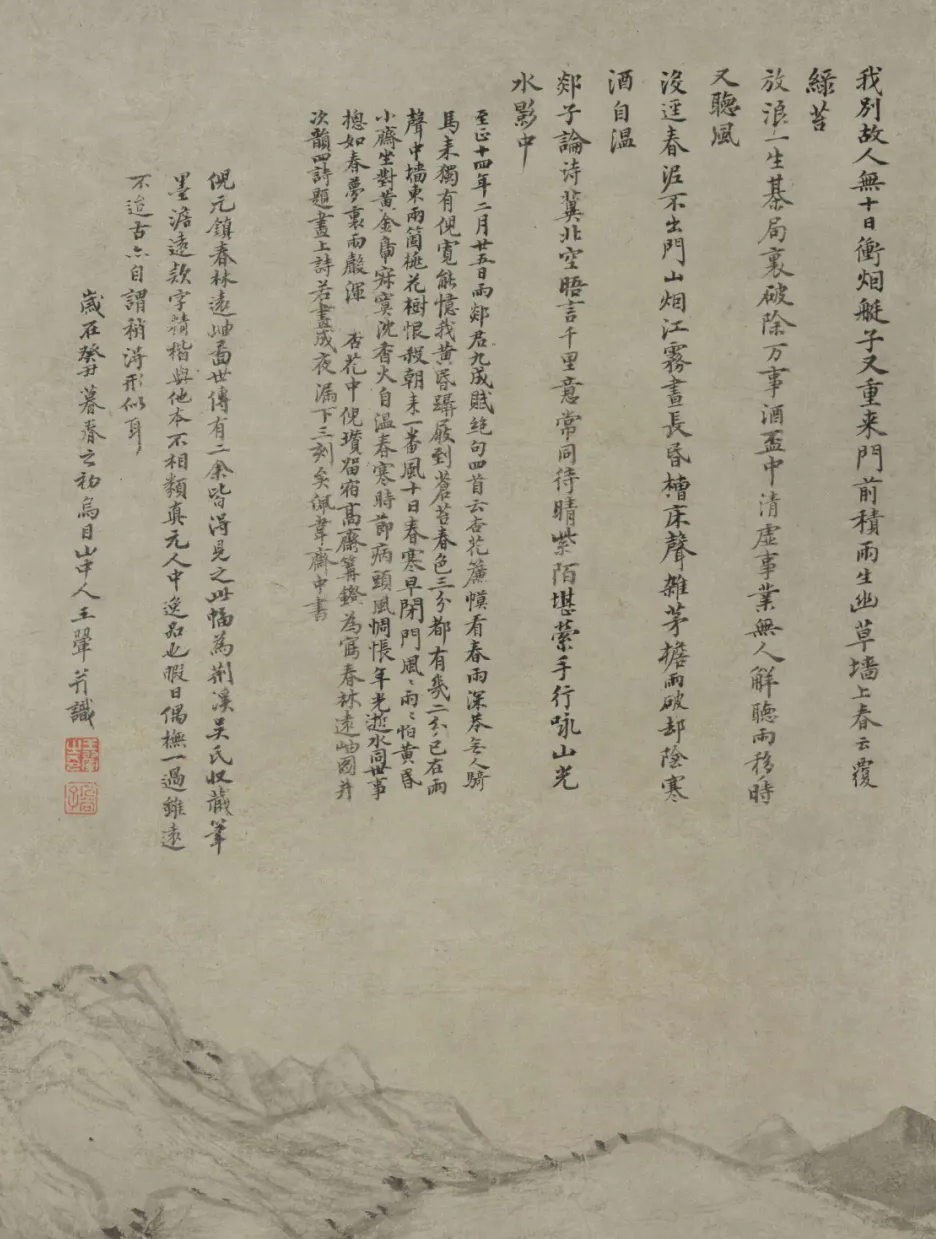 我別故人無十日衝烟艇子又重来門前積雨生幽草墻上春云覆
綠苔
放浪一生棊局裏破除万事酒盃中清虛事業無人解聴雨移時
又聴風
沒逕春泥不出門山烟江霧晝長昏槽床聲雜茅擔雨破却陰寒
酒自温
郯子論诗冀北空晤言千里意常同待晴紫陌堪縈手行咏山光
水影中
至正十四年二月廿五日雨郯君九成賦絶句四首云杏花簾幙看春雨深巷无人騎
馬来獨有倪寛能憶我黄昏躡屐到蒼苔春色三分都有幾二分已在雨
聲中墙東兩箇桃花樹恨殺朝来一番風十日春寒早閉門風〻雨〻怕黄昏
小齋坐對黄金鼎寂寞沈香火自温春寒時節病頭風惆悵年光逝水同世事
摠如春夢裏雨嚴渾 杏花中倪瓚留宿高齋篝鐙為寫春林遠岫圖并
次韻四詩題畫上詩若畫成夜漏下三刻矣佩韋齋中書
倪元鎮春林遠岫啚世傳有二余皆淂見之此幅為荆溪吴氏収蔵筆
墨澹遠款字精楷與他本不相類真元人中逸品也暇日偶橅一過雖遠
不逮古亦自謂稍淂形似耳
歲在癸丑暮春之初烏目山中人王翬并識
王翬之印
石谷子